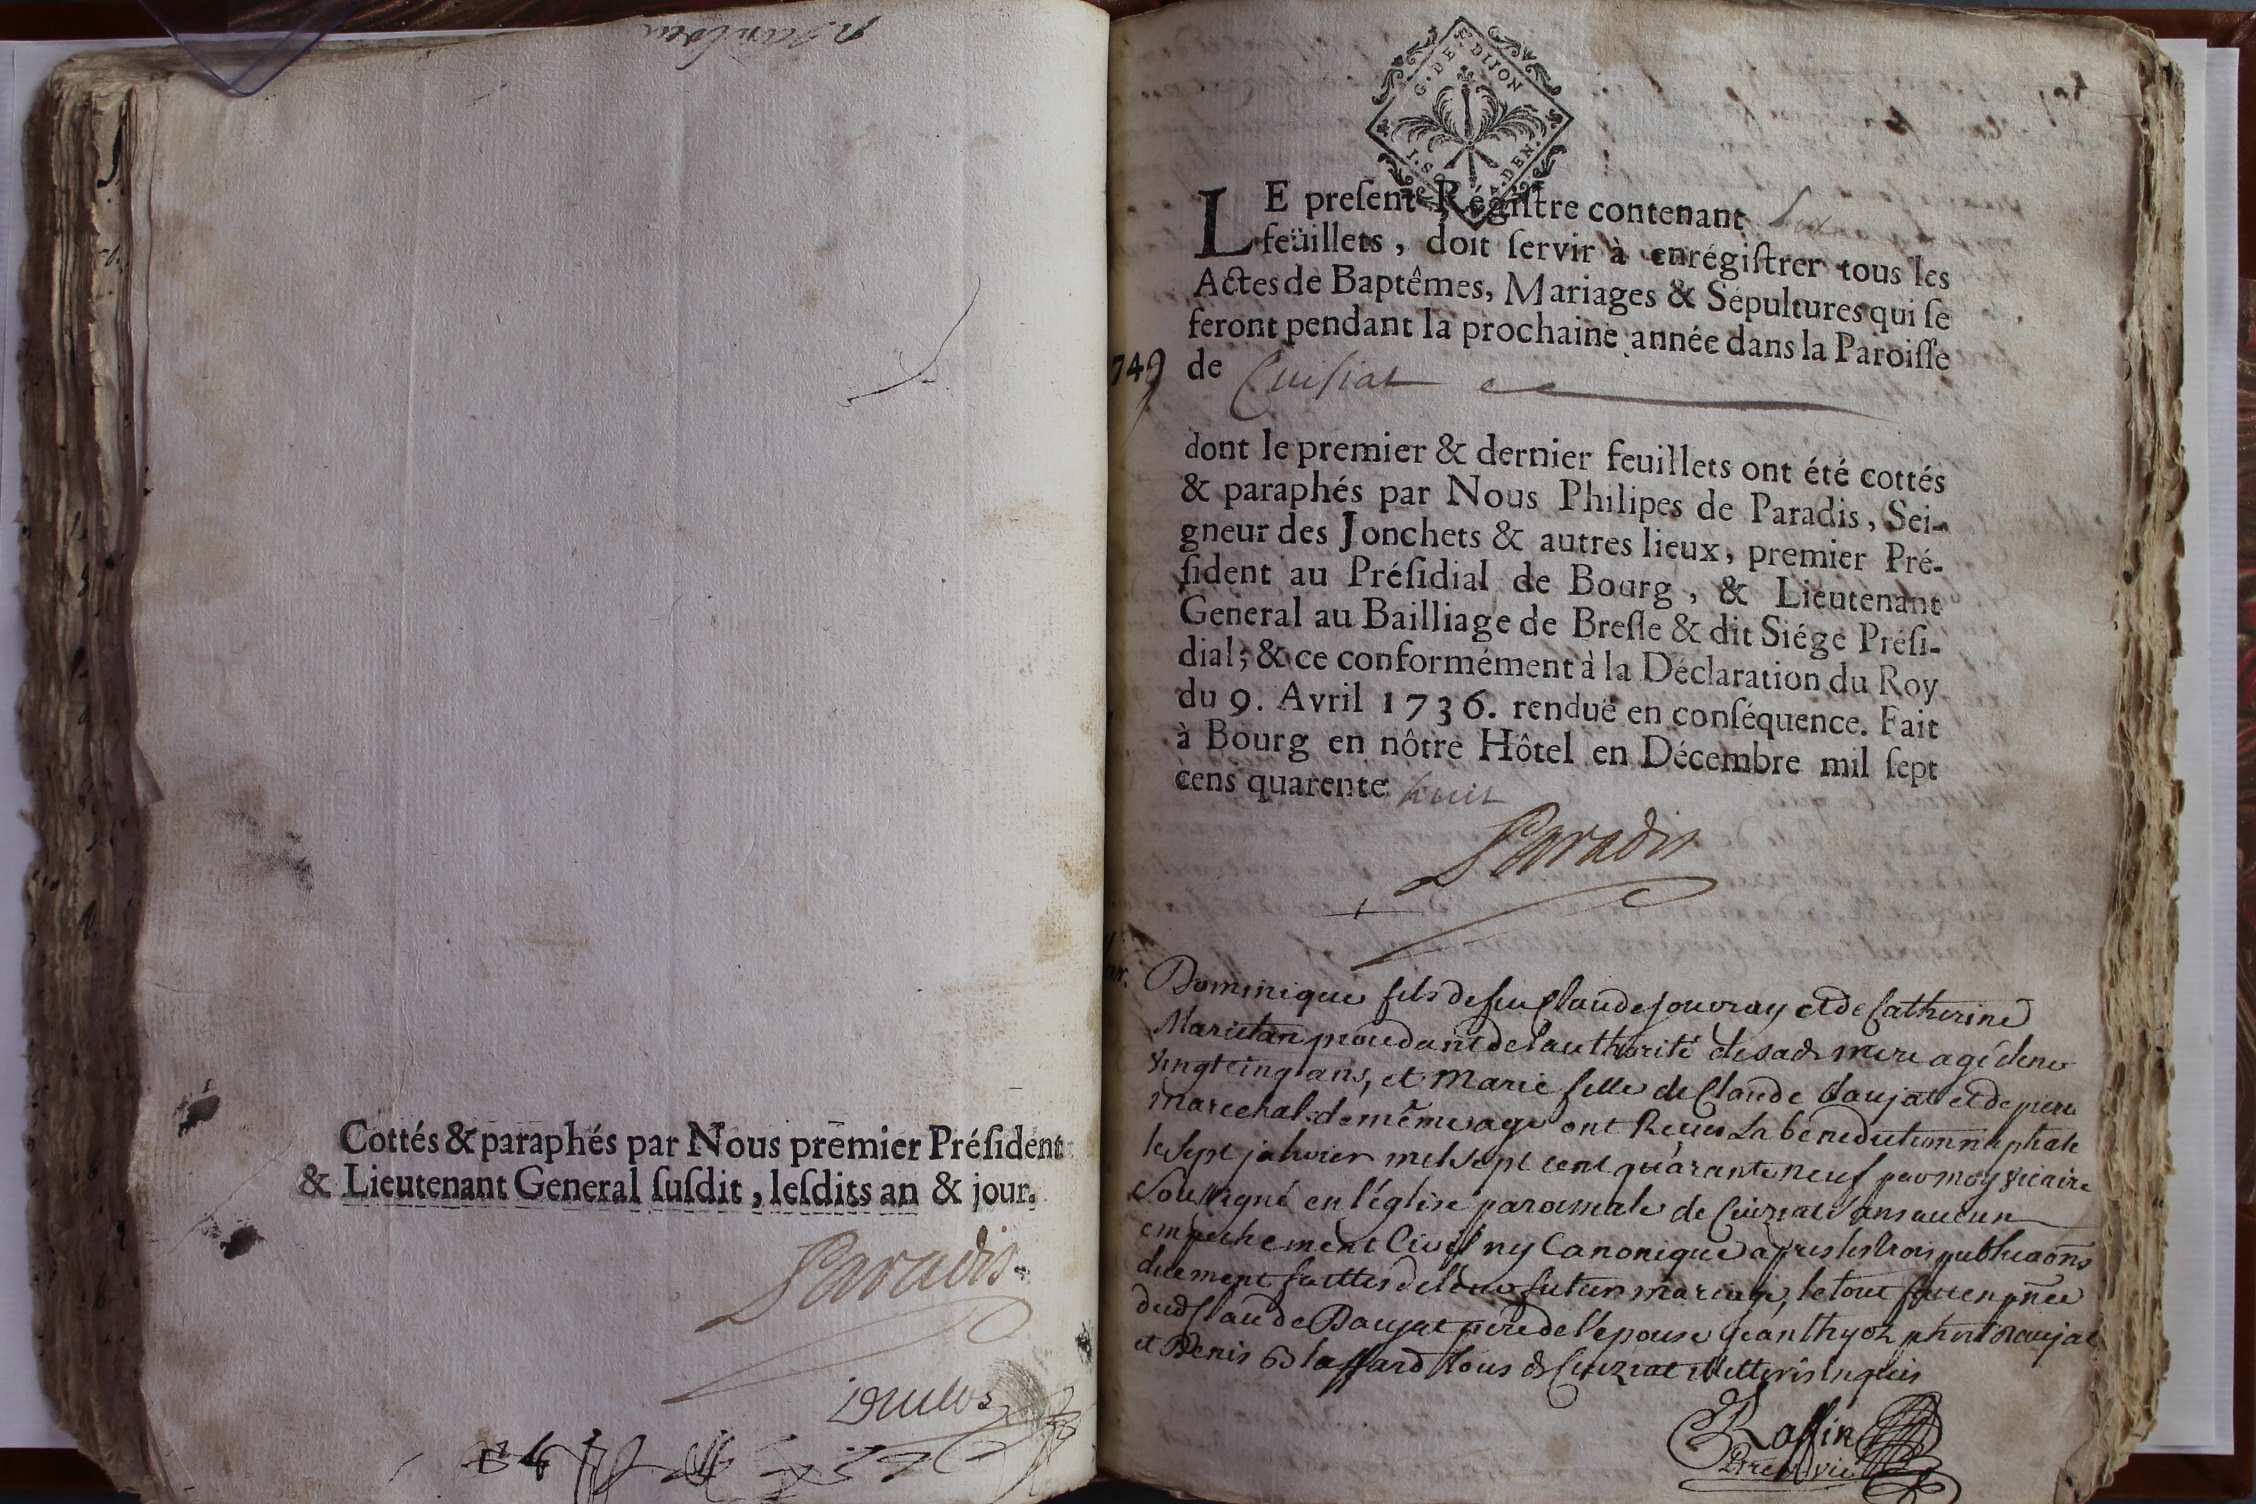 Cottés & paraphés par Nous premier Préſident
& Lieutenant General ſuſdit, leſdits an & jour.
Paradis
G. DE. DIJON
LE preſent Régiſtre contenant
feüillets, doit ſervir à enrégiſtrer tous les
Actes de Baptêmes, Mariages & Sépultures qui ſe
feront pendant la prochaine année dans la Paroiſſe
749 de Cuiſiat
dont le premier & dernier feuillets ont été cottés
& paraphés par Nous Philipes de Paradis, Sei-
gneur des Jonchets & autres lieux, premier Pré-
ſident au Préſidial de Bourg, & Lieutenant
General au Bailliage de Breſſe & dit Siége Préſi-
dial; & ce conformément à la Déclaration du Roy
du 9. Avril 1736. renduë en conſéquence. Fait
à Bourg en nôtre Hôtel en Décembre mil ſept
cens quarente huit
Paradis
Dominique fils de feu Claude Jouvray et de Catherine
de l'authorité de sad. mere agé de
vingt cinq ans, et Marie fille de Claude Daujat et de
marechal de même age ont Reçus La benediction nuptiale
le sept janvier mil sept cent quarante neuf par moy vicaire
soussigné en l'église paroissiale de Cuiziat sans aucun
empechement Civil ny Canonique apres les trois publicaôns
duement faittes de leur futur mariage, le tout fait en pñce
dud Claude Daujat pere de l'epouse
et Denis tous de Cuiziat illitteris enquis
Raffin